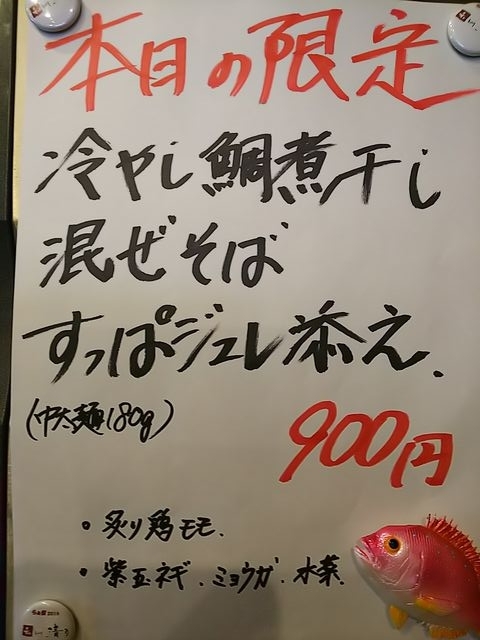 本日の限定
冷やし鯛煮干し
混ぜそば
すっぱジュレ添え.
(中太麺180g)
900円
・炙り鶏モモ.
・紫玉ネギ.ミョウガ.水菜.